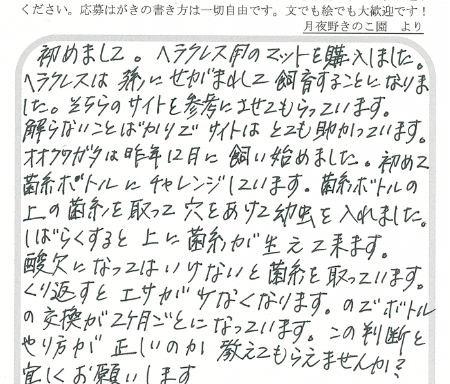 ください。応募はがきの書き方は一切自由です。文でも絵でも大歓迎です!
月夜野きのこ園 より
初めまして。ヘラクレス用のマットを購入しました。
ヘラクレスは孫にせがまれて飼育することになりま
した。そちらのサイトを参考にさせてもらっています。
解らないことばかりでサイトはとても助かっています。
オオクワガタは昨年12月に飼い始めました。初めて
菌糸ボトルにチャレンジしています。菌糸ボトルの
上の菌糸を取って穴をあけて幼虫を入れました。
しばらくすると上に菌糸が生えて来ます。
酸欠になってはいけないと菌糸を取っています。
くり返すとエサが少なくなります。のでボトル
の交換が2ケ月ごとになっています。この判断と
やり方が正しいのか教えてもらえませんか?
宜しくお願いします